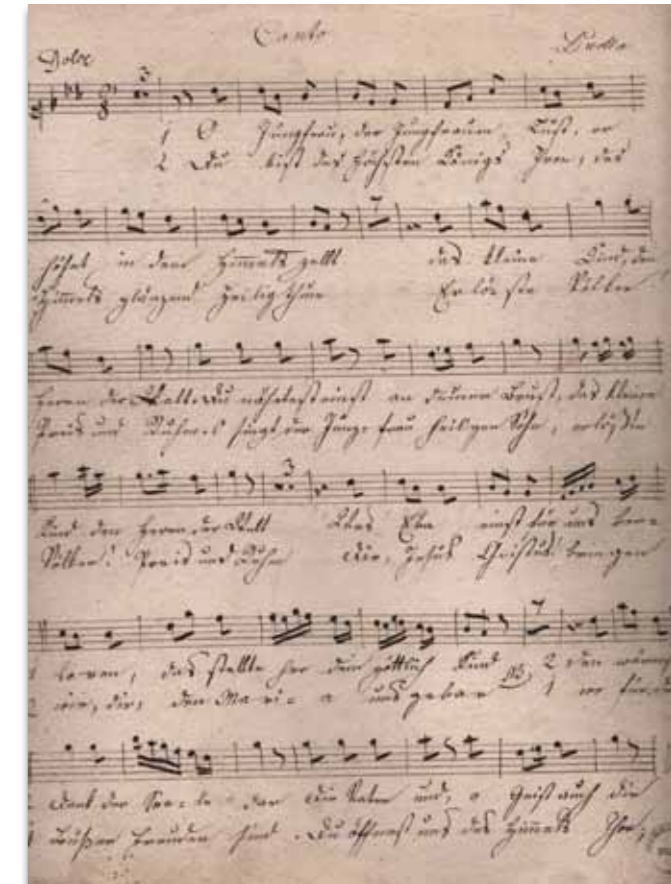 Canto
Dolce
3
1 O Jungfrau, der Jungfrauen Lust, er
2 Du bist des höchsten Königs Tron, des
höhet in dem Himmels zellt das kleine Kind, den
Himmels glänzend Heiligthum Erlöste Völker
Herren der Welt. Du nährtest einst an deiner Brust, das kleine
Preis und Ruhm. Es singt der Jung=frau heiligen Sohn, erlößte
3
Kind den Herren der Welt Was Eva einst für uns
Völker! Preis und Ruhm Dir, Jesus Christus bringen
1 loren, das stellte her dein göttlich Kind 2 den
2 wir, dir, den Ma ri= a uns gebar 1 wo für
Dank der See= le dar die Vater und, o Geist auch die
Freuden sind. Du öffnest uns des Himmels Thor,